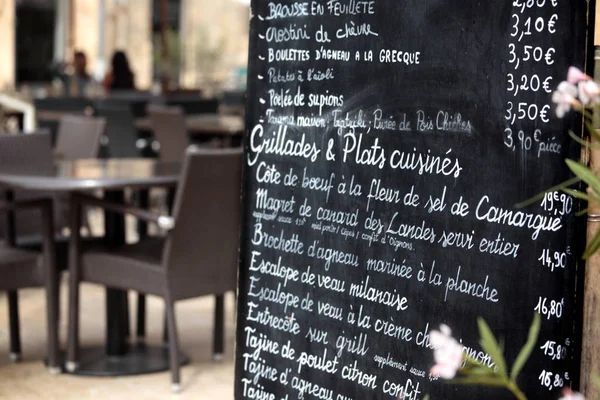 - BROUSSE EN FEUILLETÉ
- Crostini de chèvre 3,10€
- BOULETTES D'AGNEAU A LA GRECQUE 3,50€
- Patates à l'aïoli 3,20€
- Poêlée de supions 3,50€
maison : Tzatziki ; Purée de Pois Chiches 3,90€ pièce
Grillades & Plats cuisinés
Côte de boeuf à la fleur de sel de Camargue 19,90
Magret de canard des Landes servi entier 14,90
supplément sauce
Brochette d'agneau marinée à la planche 16,80€
Escalope de veau milanaise
Escalope de veau à la crème 15,80€
Entrecôte sur grill supplément sauce 16,80€
Tajine de poulet citron confit
Tajine d'agneau
Tajine de